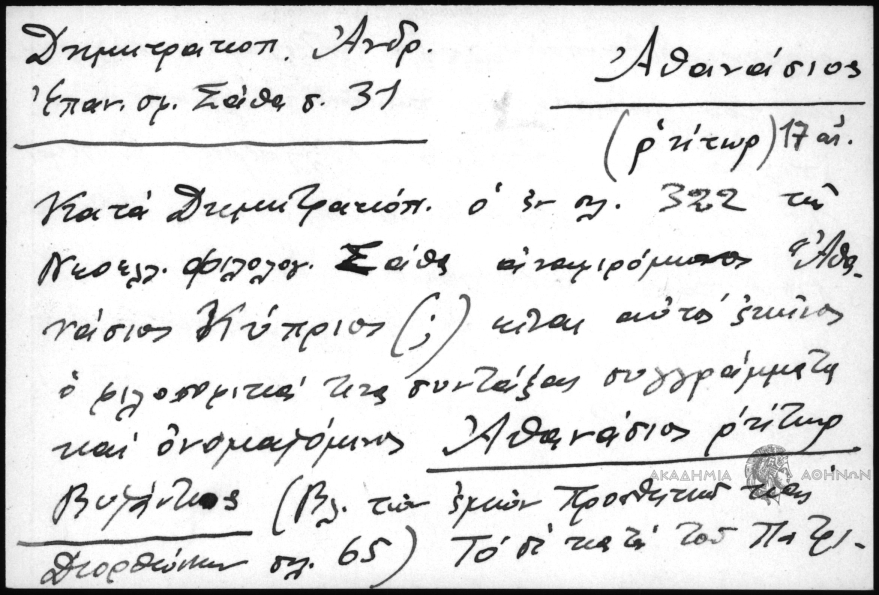 Δημητρακοπ. Ἀνδρ.
Ἐπαν. σφ. Σάθα σ. 31
Ἀθανάσιος
(ῥήτωρ) 17 αἰ.
Κατὰ Δημητρακόπ. ὁ ἐν σελ. 322 τῆς
Νεοελλ. Φιλολογ. Σάθα ἀναφερόμενος Ἀθα-
νάσιος Κύπριος (;) εἶναι αὐτὸς ἐκεῖνος
ὁ φιλοσοφικά τινα συντάξας συγγράμματα
καὶ ὀνομαζόμενος Ἀθανάσιος ῥήτωρ
Βυζάντιος (Βλ. τῶν ἐμῶν Προσθηκῶν καὶ
ΑΚΑΔΗΜΙΑ ΑΘΗΝΩΝ
Διορθώσεων σελ. 65) Τὸ δὲ κατὰ τοῦ Πατρι-